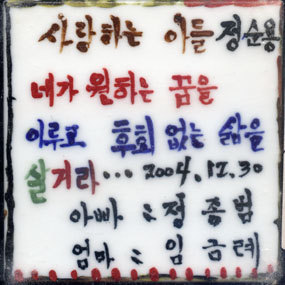 사랑하는 아들 정순용
네가 원하는 꿈을
이루고 후회 없는 삶을
살거라... 2004.12.30
아빠 : 정종범
엄마 : 임금례